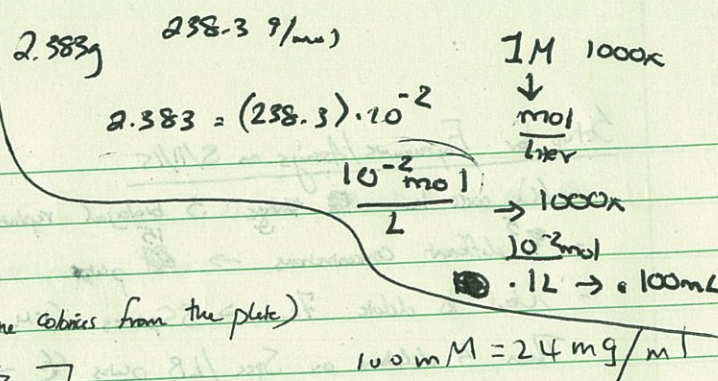 2.383g 238.3 g/mol
1M 1000x
↓
2.383 = (238.3) · 10^-2
mol
Liter
10^-2 mol
L
→ 1000x
10^-2 mol
.1L → 100mL
colonies from the plate)
100mM = 24mg/ml